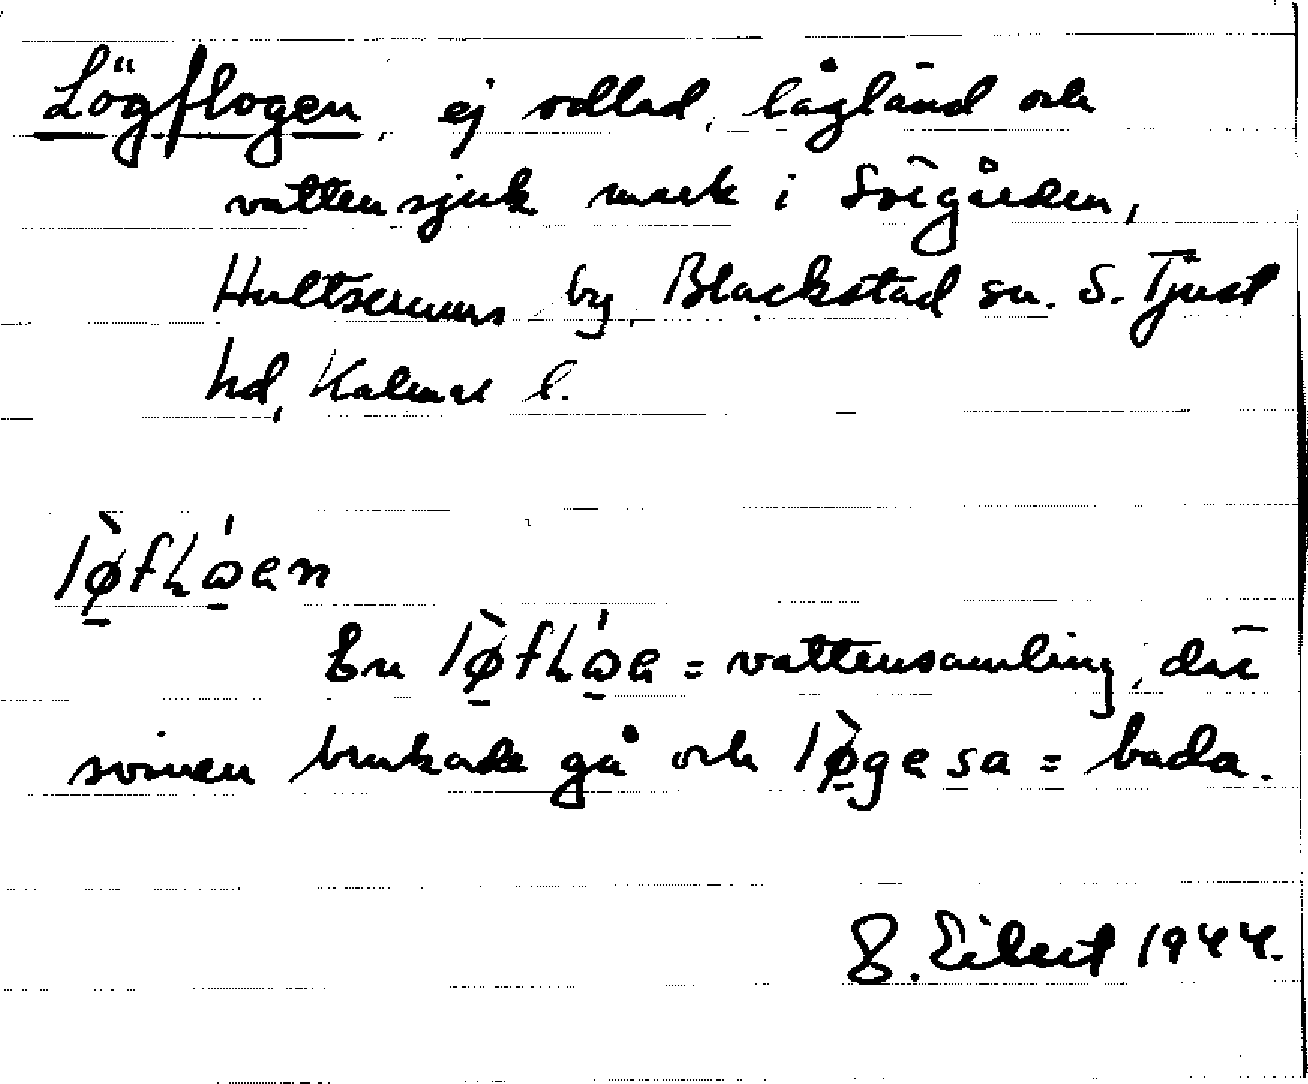 Lögflogen, ej odlad, lågländ och
vattensjuk mark i Sörgården,
Hultserums by, Blackstad sn. S. Tjust
hd, Kalmar l.
lø̱̀fɫɷ̱́en
En lø̱̀fɫɷ̱́e = vattensamling, där
svinen brukade gå och lø̱̀gesa = bada.
E. Eibert 1944.